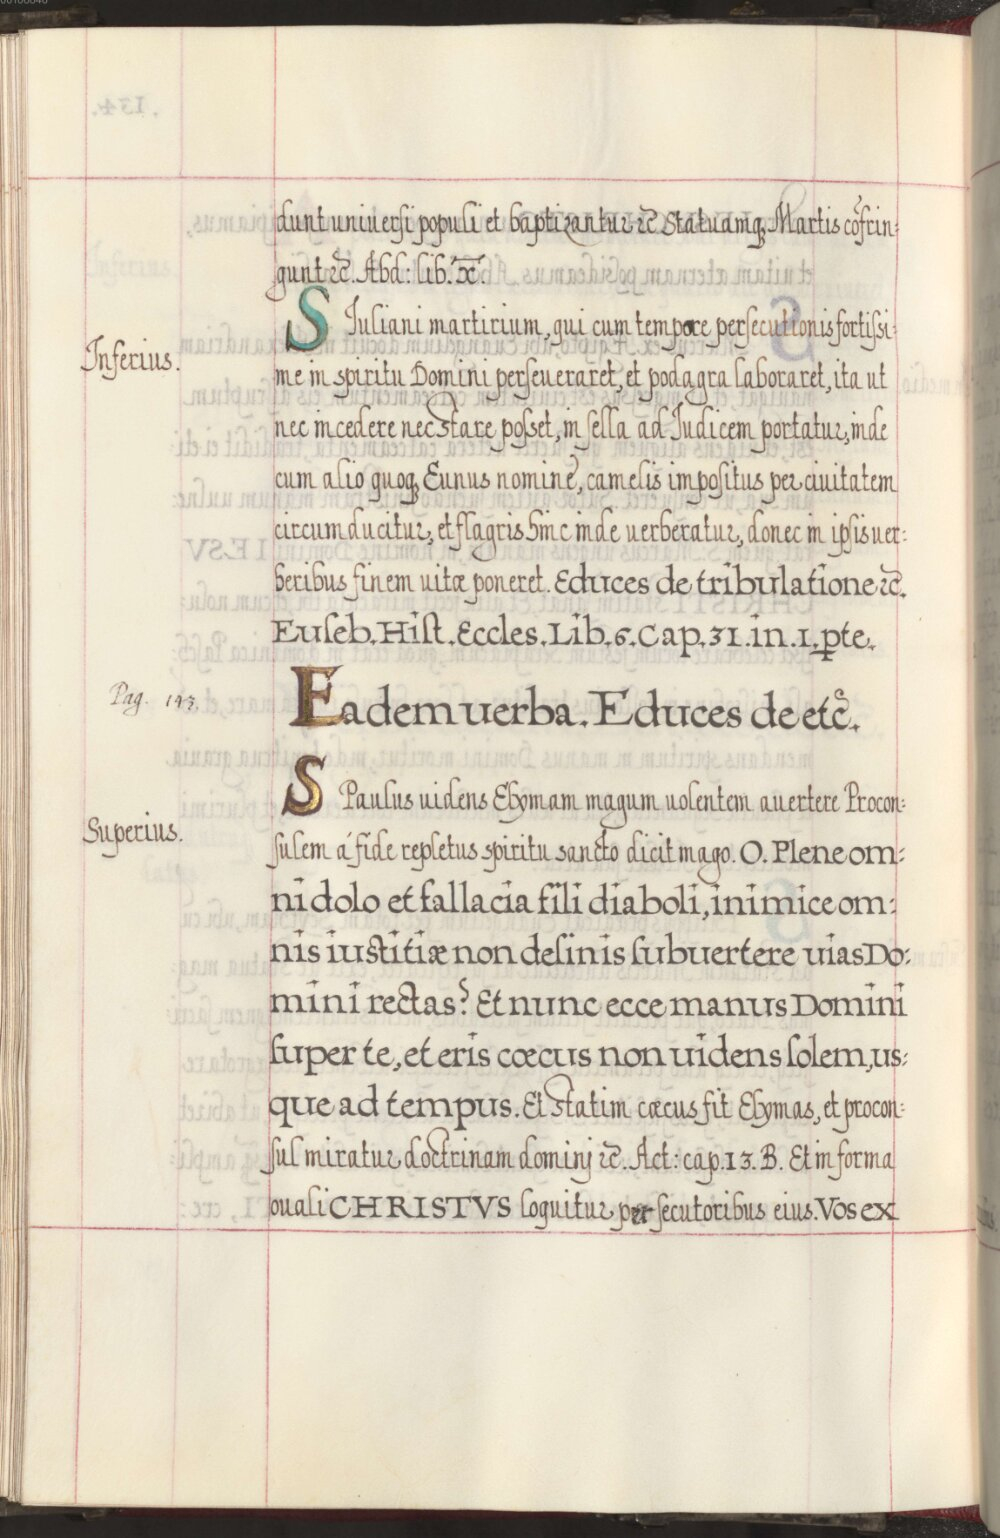 dunt uniuersi populi et baptizantur &c̃ statuamq; Martis cõfrin-
gunt &c̃. Abd: lib. X.
S Iuliani martirium, qui cum tempore persecutionis fortissi-
Inferius.
me in spiritu Domini perseueraret, et podagra laboraret, ita ut
nec incedere nec stare posset, in sella ad Iudicem portatur, inde
cum alio quoq; Eunus nomine, camelis impositus per ciuitatem
circumducitur, et flagris hinc inde uerberatur, donec in ipsis uer-
beribus finem uitæ poneret. Educes de tribulatione &c̃.
Euseb. Hist. Eccles. Lib. 6. Cap. 31. in. 1. ꝑte.
Pag. 143.
Eadem uerba. Educes de etc̃.
S Paulus uidens Elymam magum uolentem auertere Procon-
Superius.
sulem á fide repletus spiritu sancto dicit mago. O. Plene om-
ni dolo et fallacia fili diaboli, inimice om-
nis iustitiæ non desinis subuertere uias Do-
mini rectas? Et nunc ecce manus Domini
super te, et eris cœcus non uidens solem, us-
que ad tempus. Et statim cæcus fit Elymas, et procon-
sul miratur doctrinam dominj &c̃. Act: cap. 13. B. Et in forma
ouali CHRISTVS loquitur persecutoribus eius. Vos ex